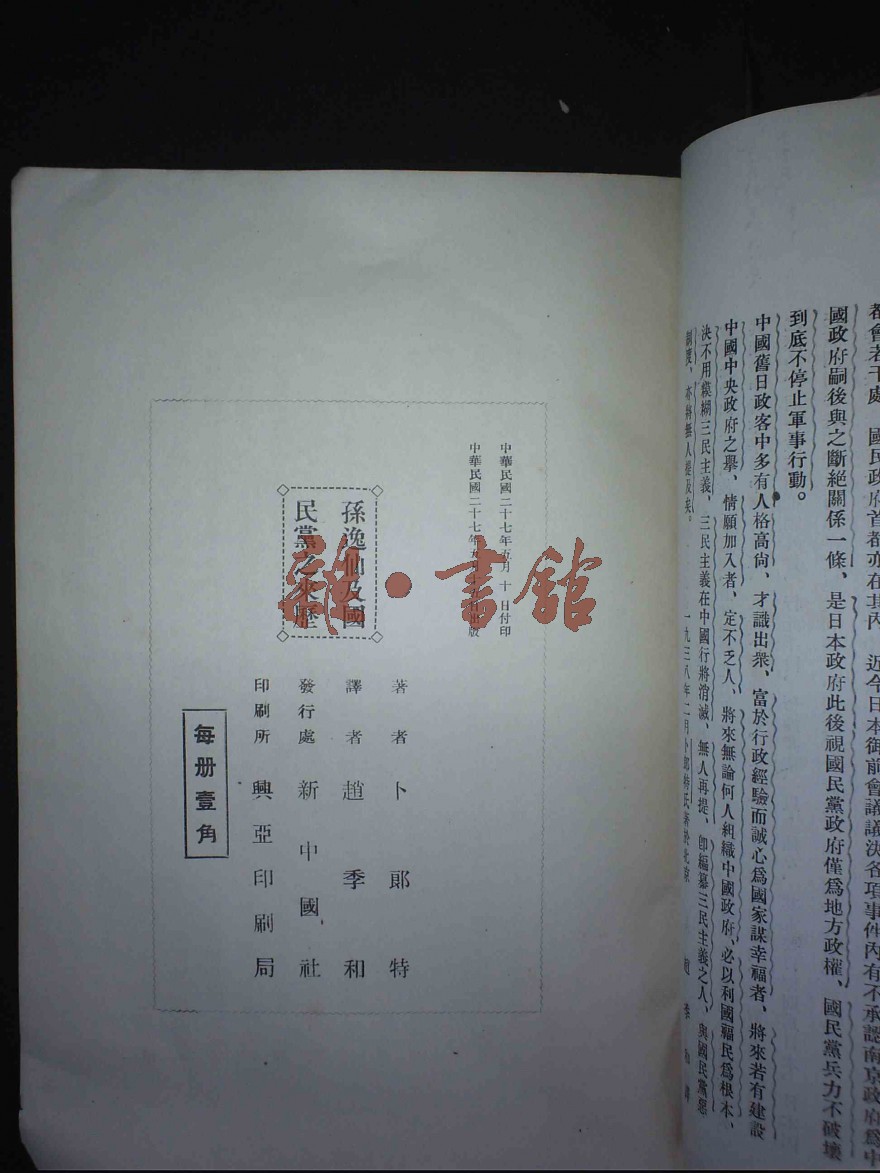 都會若干處　國民政府首都亦在其內　近今日本御前會議議決各項事件內有不承認南京政府爲中
國政府嗣後與之斷絕關係一條、是日本政府此後視國民黨政府僅爲地方政權、國民黨兵力不破壞
到底不停止軍事行動。
中國舊日政客中多有人格高尙、才識出衆、富於行政經驗而誠心爲國家謀幸福者、將來若有建設
中國中央政府之舉、情願加入者、定不乏人、將來無論何人組織中國政府、必以利國福民爲根本、
決不用糢糊三民主義、三民主義在中國行將消滅、無人再提、卽編纂三民主義之人、與國民黨惡
制度、亦將無人提及矣。
一九三八年二月卜郎特氏著於北京　趙季和譯
中華民國二十七年五月十日付印
中華民國二十七年五月 日出版
孫逸仙及國
民黨之來歷
著者 卜郎特
譯者 趙季和
發行處 新中國社
印刷所 興亞印刷局
每册壹角
雜·書館